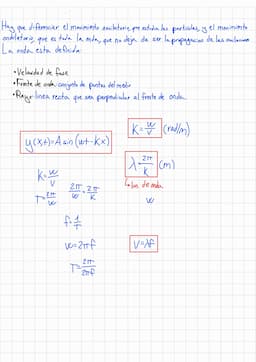 Hay que diferenciar el movimiento oscilatorio, que estudia las partículas, y el movimiento
ondulatorio, que es toda la onda, que no deja de ser la propagación de las oscilaciones
La onda esta definida:
• Velocidad de fase
• Frente de onda: conjunto de puntos del medio
• Rayo: linea recta que sea perpendicular al frente de onda.
K = w/v (rad/m)
y(x,t) = A sin (wt - kx)
λ = 2π/K (m)
K = w/v
Long de onda
T = 2π/w
2π/w = 2π/K
w
f = 1/T
w = 2πf
V = λf
T = 2π/2πf